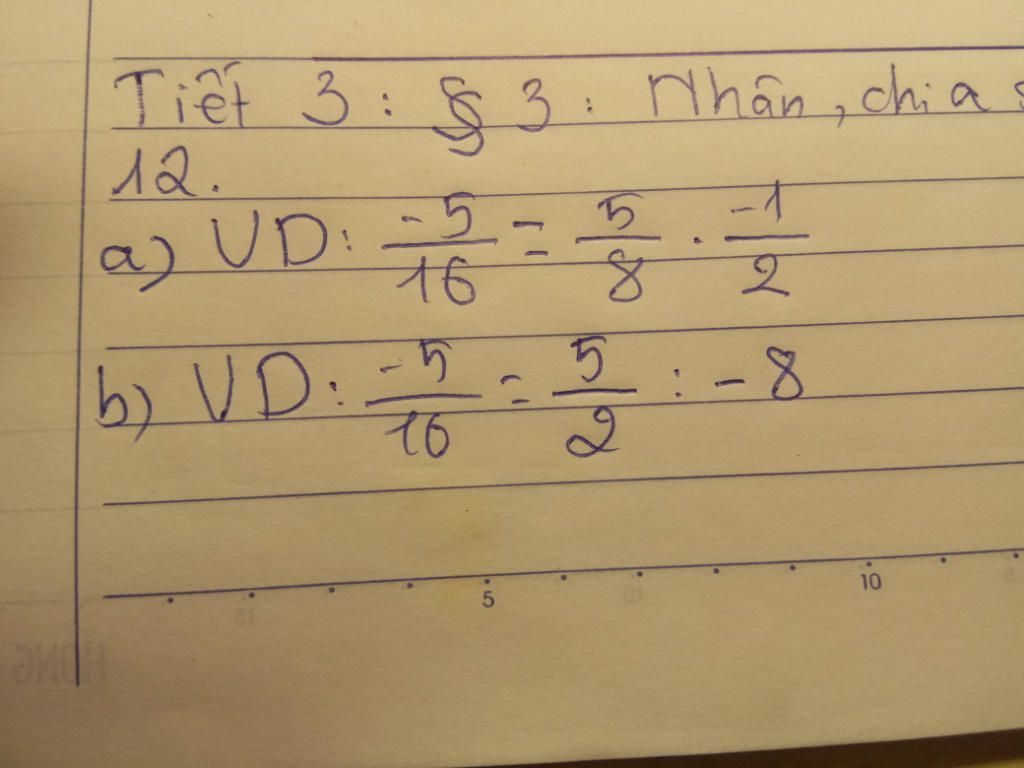 Tiết 3 : § 3 : Nhân, chia
12.
a) VD: -5/16 = 5/8 . -1/2
b) VD: -5/16 = 5/2 : -8
5 10